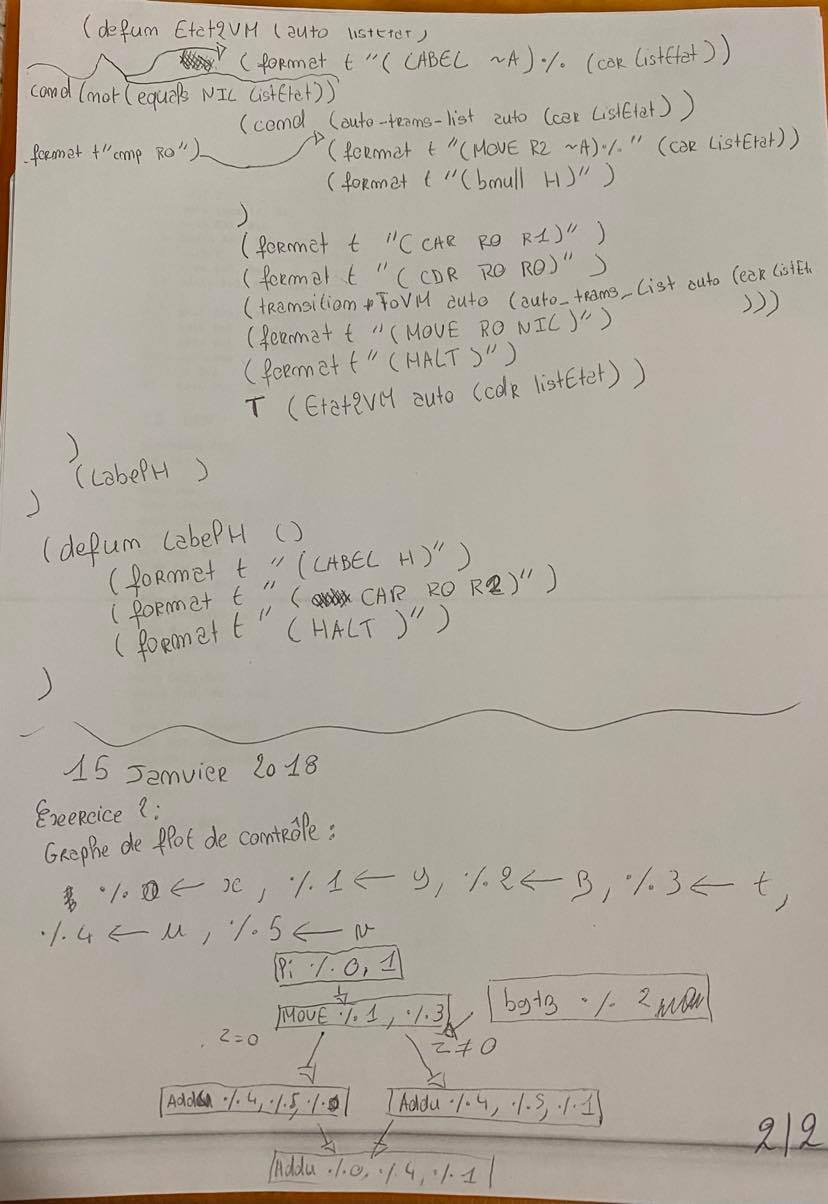 (defun Etat2VM (auto listEtat)
(format t "( LABEL ~A)·/. (car ListEtat))
cond (not (equals NIL ListEtat))
(cond (auto-trans-list auto (car ListEtat))
format t "cmp R0")
(format t "(MOVE R2 ~A)·/." (car ListEtat))
(format t "(bnull H)")
)
(format t "( CAR R0 R1)" )
(format t "( CDR R0 R0)" )
(transition+ToVM auto (auto_trans_List auto (car ListEt
)))
(format t "(MOVE R0 NIL)")
(format t "(HALT)")
T (Etat2VM auto (cdr listEtat))
)
(LabelH )
)
(defun LabelH ()
(format t "(LABEL H)")
(format t "( CAR R0 R2)")
(format t "( HALT )")
)
15 Janvier 2018
Exercice 2:
Graphe de flot de contrôle :
·/. 0 ← x, ·/. 1 ← y, ·/. 2 ← z, ·/. 3 ← t,
·/. 4 ← u, ·/. 5 ← v
Pi ·/. 0, 1
MOVE ·/. 1, ·/. 3
·/. 2
z=0
z≠0
Addu ·/. 4, ·/. 5, ·/. 0
Addu ·/. 4, ·/. 5, ·/. 1
2/2
Addu ·/. 0, ·/. 4, ·/. 1